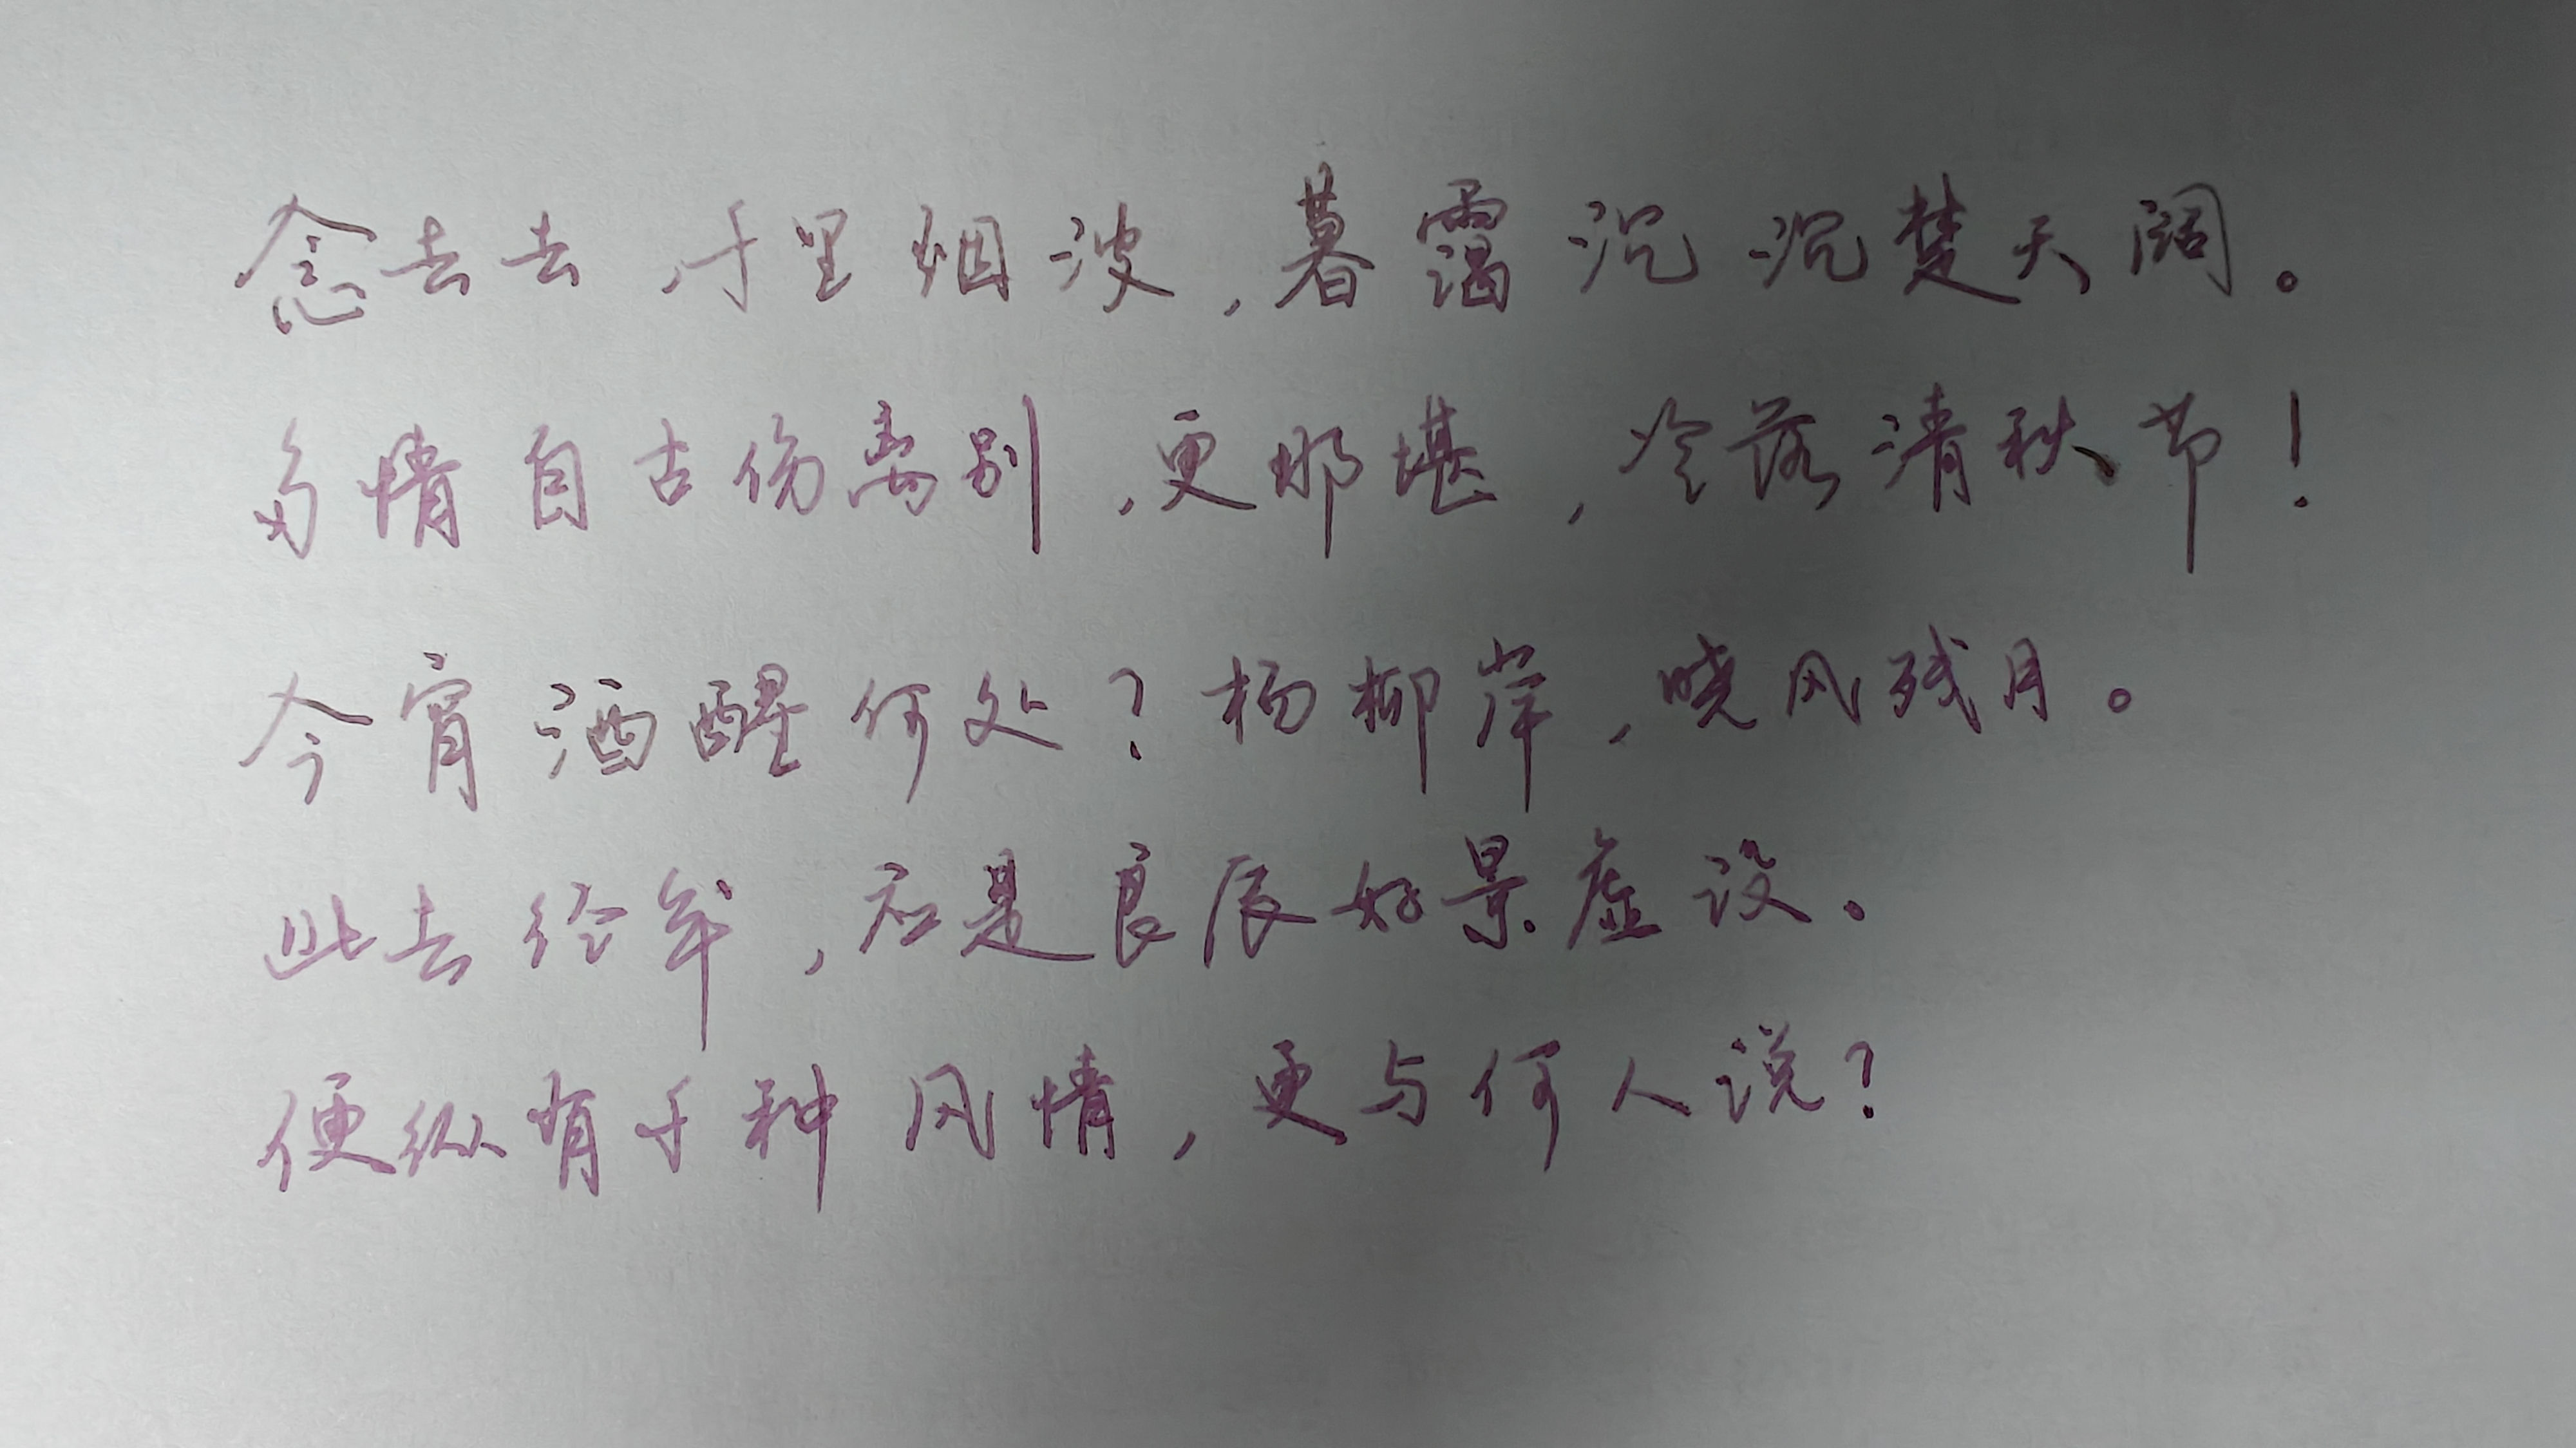 念去去,千里烟波,暮霭沉沉楚天阔。
多情自古伤离别,更那堪,冷落清秋节!
今宵酒醒何处?杨柳岸,晓风残月。
此去经年,应是良辰好景虚设。
便纵有千种风情,更与何人说?